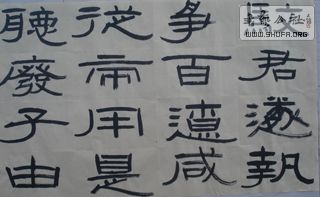 君遂執
爭百遼咸
從帝用是
聽廢子由
WWW.SHUFA.ORG